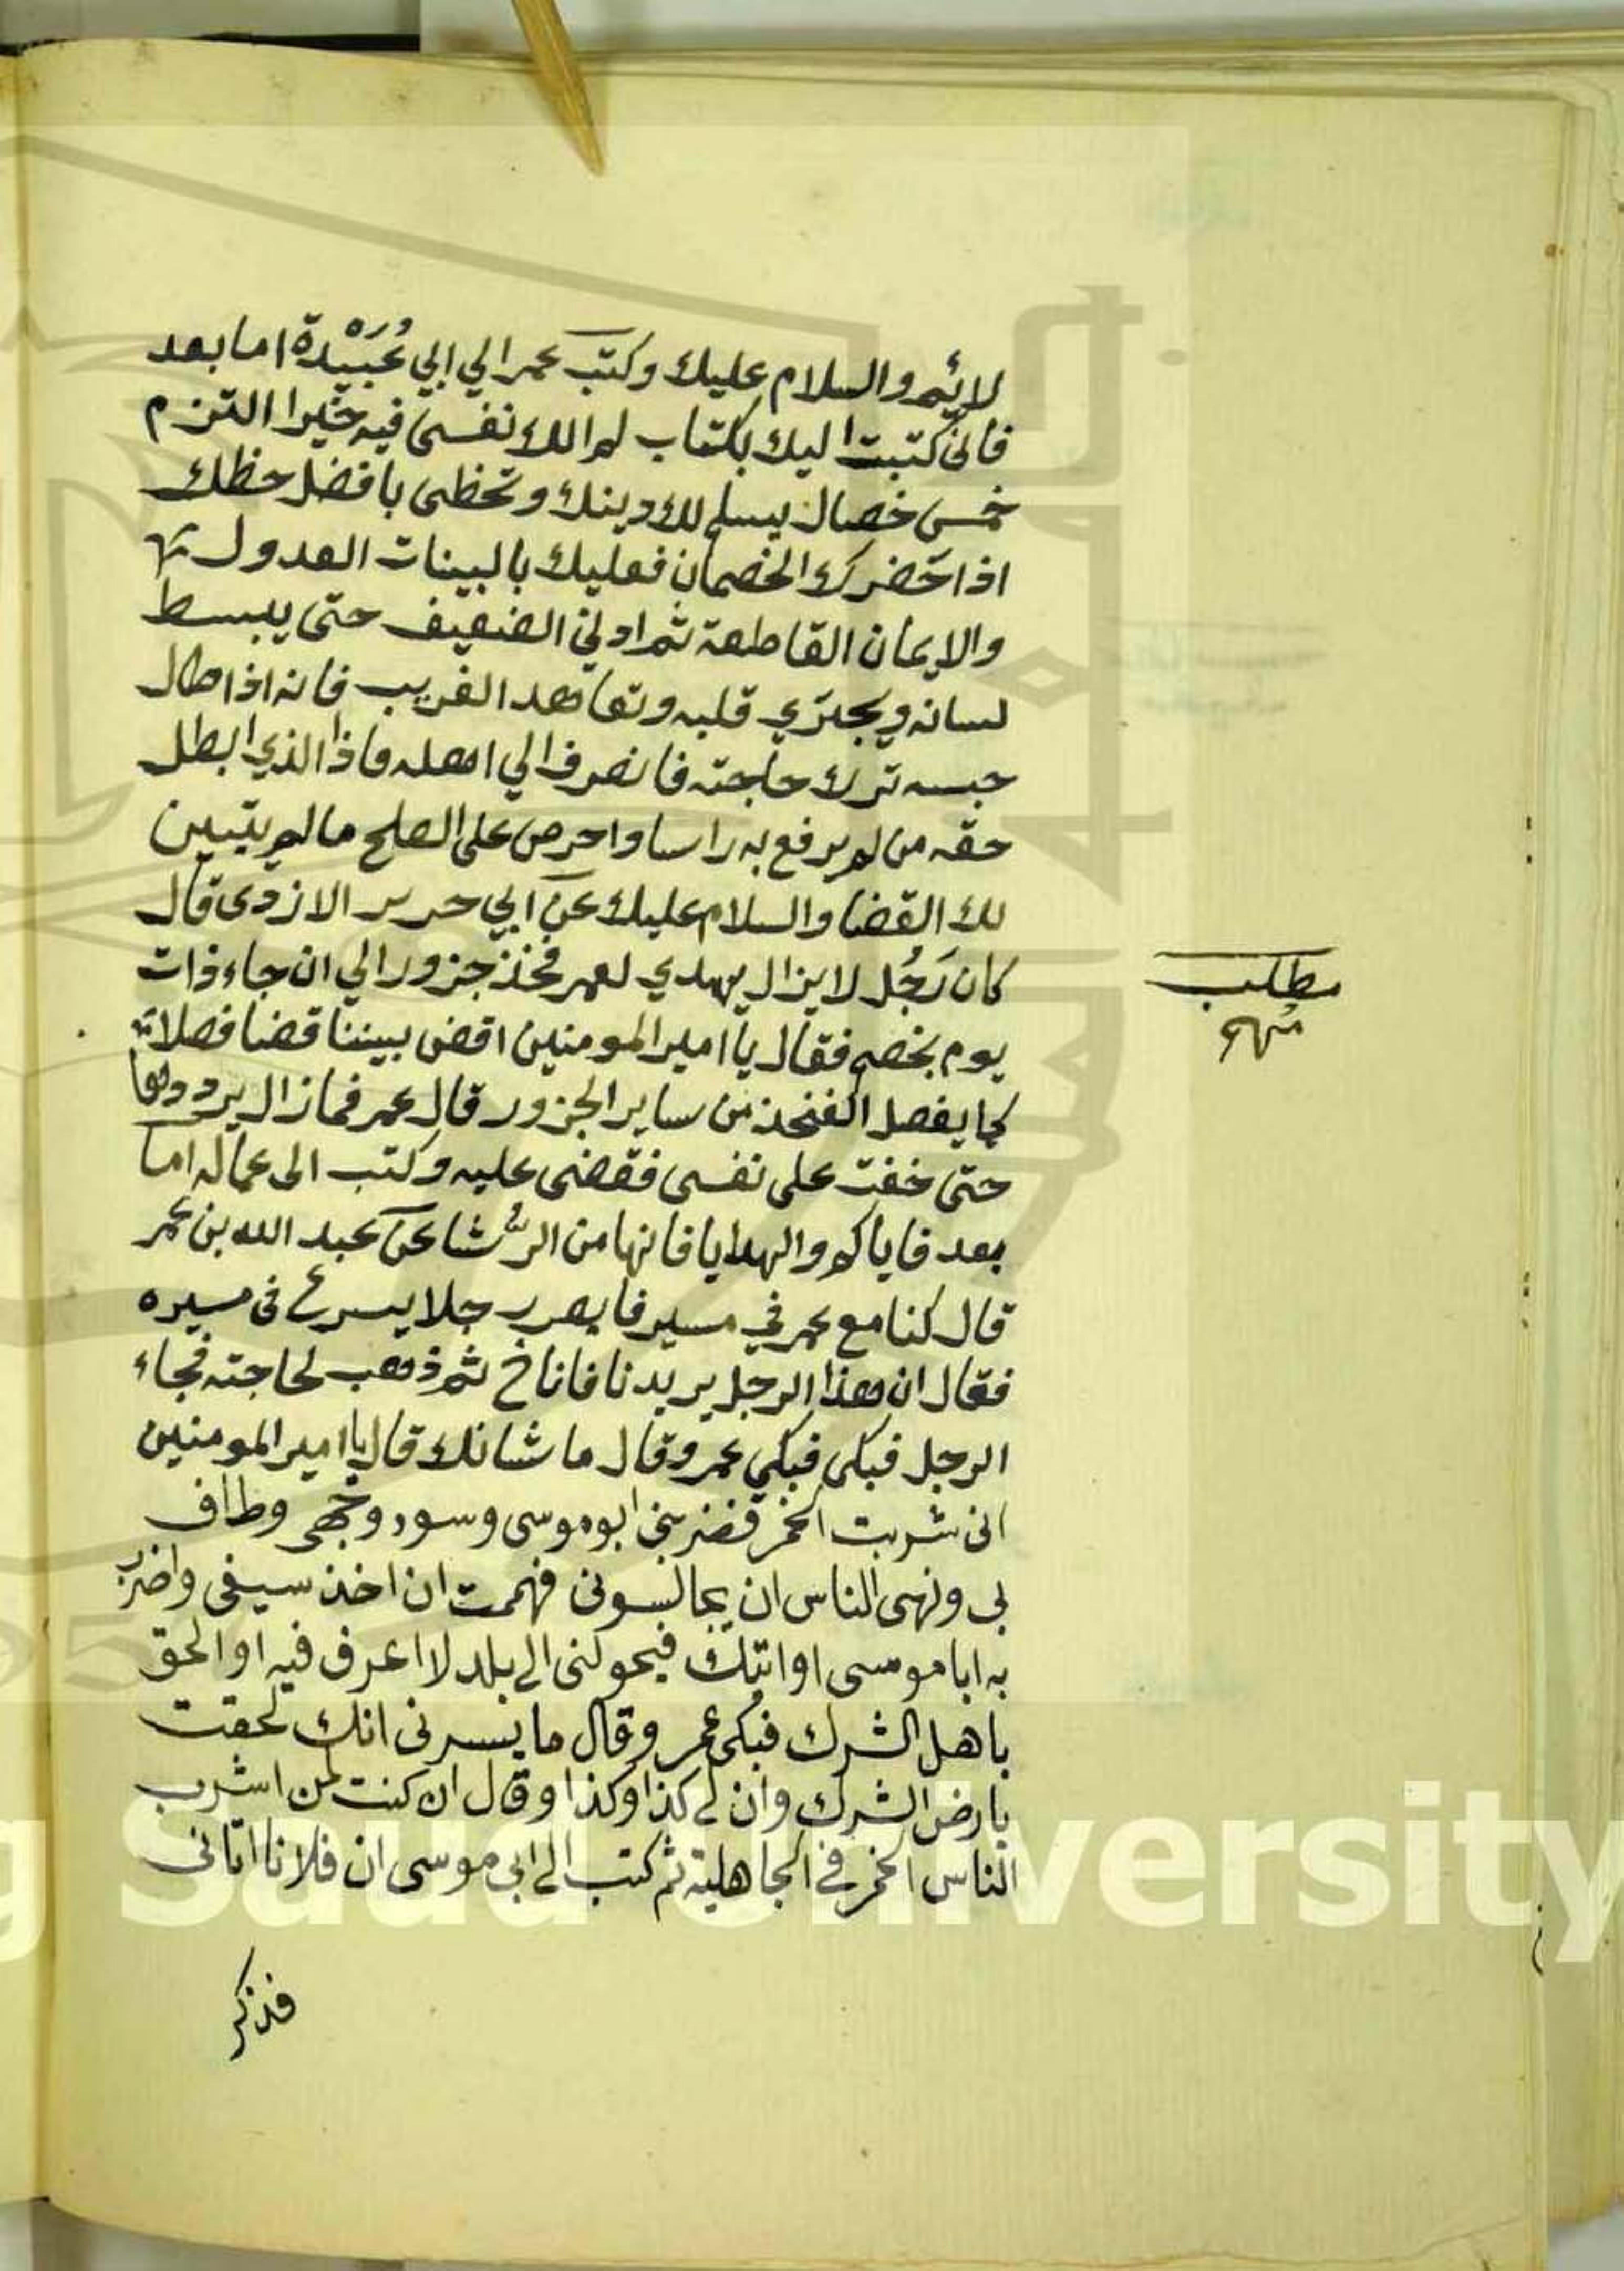 لائم والسلام عليك وكتب عمر الي ابي عُبَيْدة اما بعد
فانى كتبت اليك بكتاب لم الك نفسى فيه خيرا التزم
خمس خصال يسلم لك دينك وتحظى بافضل حظك
اذا حضرك الخصمان فعليك بالبينات العدول
والايمان القاطعة ثم ادني الضعيف حتى يبسط
لسانه ويجتري قلبه وتعاهد الغريب فانه اذا طال
حبسه ترك حاجته فانصرف الي اهله فاذا الذي ابطل
حقه من لم يرفع به راسا واحرص على الصلح ما لم يتبين
لك القضا والسلام عليك عن ابي حرير الازدى قال
كان رَجُل لا يزال يهدي لعمر فخذ جزور الي ان جاء ذات
يوم بخصم فقال يا امير المومنين اقض بيننا قضا فصلا
كما يفصل الفخذ من ساير الجزور قال عمر فما زال يرددها
حتى خفت على نفسى فقضى عليه وكتب الى عماله اما
بعد فاياكم والهدايا فانها من الرُّشا عن عبد الله بن عمر
قال كنا مع عمر في مسير فابصر رجلا يسرع فى مسيره
فقال ان هذا الرجل يريدنا فاناخ ثم ذهب لحاجته فجاء
الرجل فبكى فبكي عمر وقال ما شانك قال يا امير المومنين
انى شربت الخمر فضربنى ابو موسى وسود وجهى وطاف
بى ونهى الناس ان يجالسونى فهممت ان اخذ سيفى واضرب
به ابا موسى او اتيك فيحولنى الى بلد لا اعرف فيه او الحق
باهل الشرك فبكى عمر وقال ما يسرنى انك لحقت
بارض الشرك وان لى كذا وكذا وقال ان كنت لمن اشرب
الناس الخمر في الجاهلية ثم كتب الى ابى موسى ان فلانا اتانى
فذكر
مطلب
مُهم
King Saud University